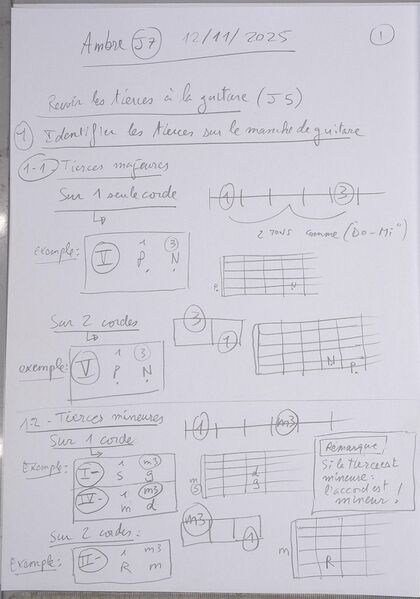 Ambre J7 12/11/2025 1
Revoir les tierces à la guitare (J5)
1 Identifier les tierces sur le manche de guitare
1-1- Tierces majeures
Sur 1 seule corde
1 3
2 tons comme ("Do-Mi")
exemple:
1 3
V P N
P. N
Sur 2 cordes
3
1
exemple:
1 3
V P N
N P.
1.2 - Tierces mineures
1 m3
Sur 1 corde
Exemple:
1 m3
I- S g
1 m3
IV- m d
m d
S g
Remarque
Si la tierce est
mineure:
l'accord est
mineur!
Sur 2 cordes:
m3
1
Exemple:
1 m3
II- R m
m
R